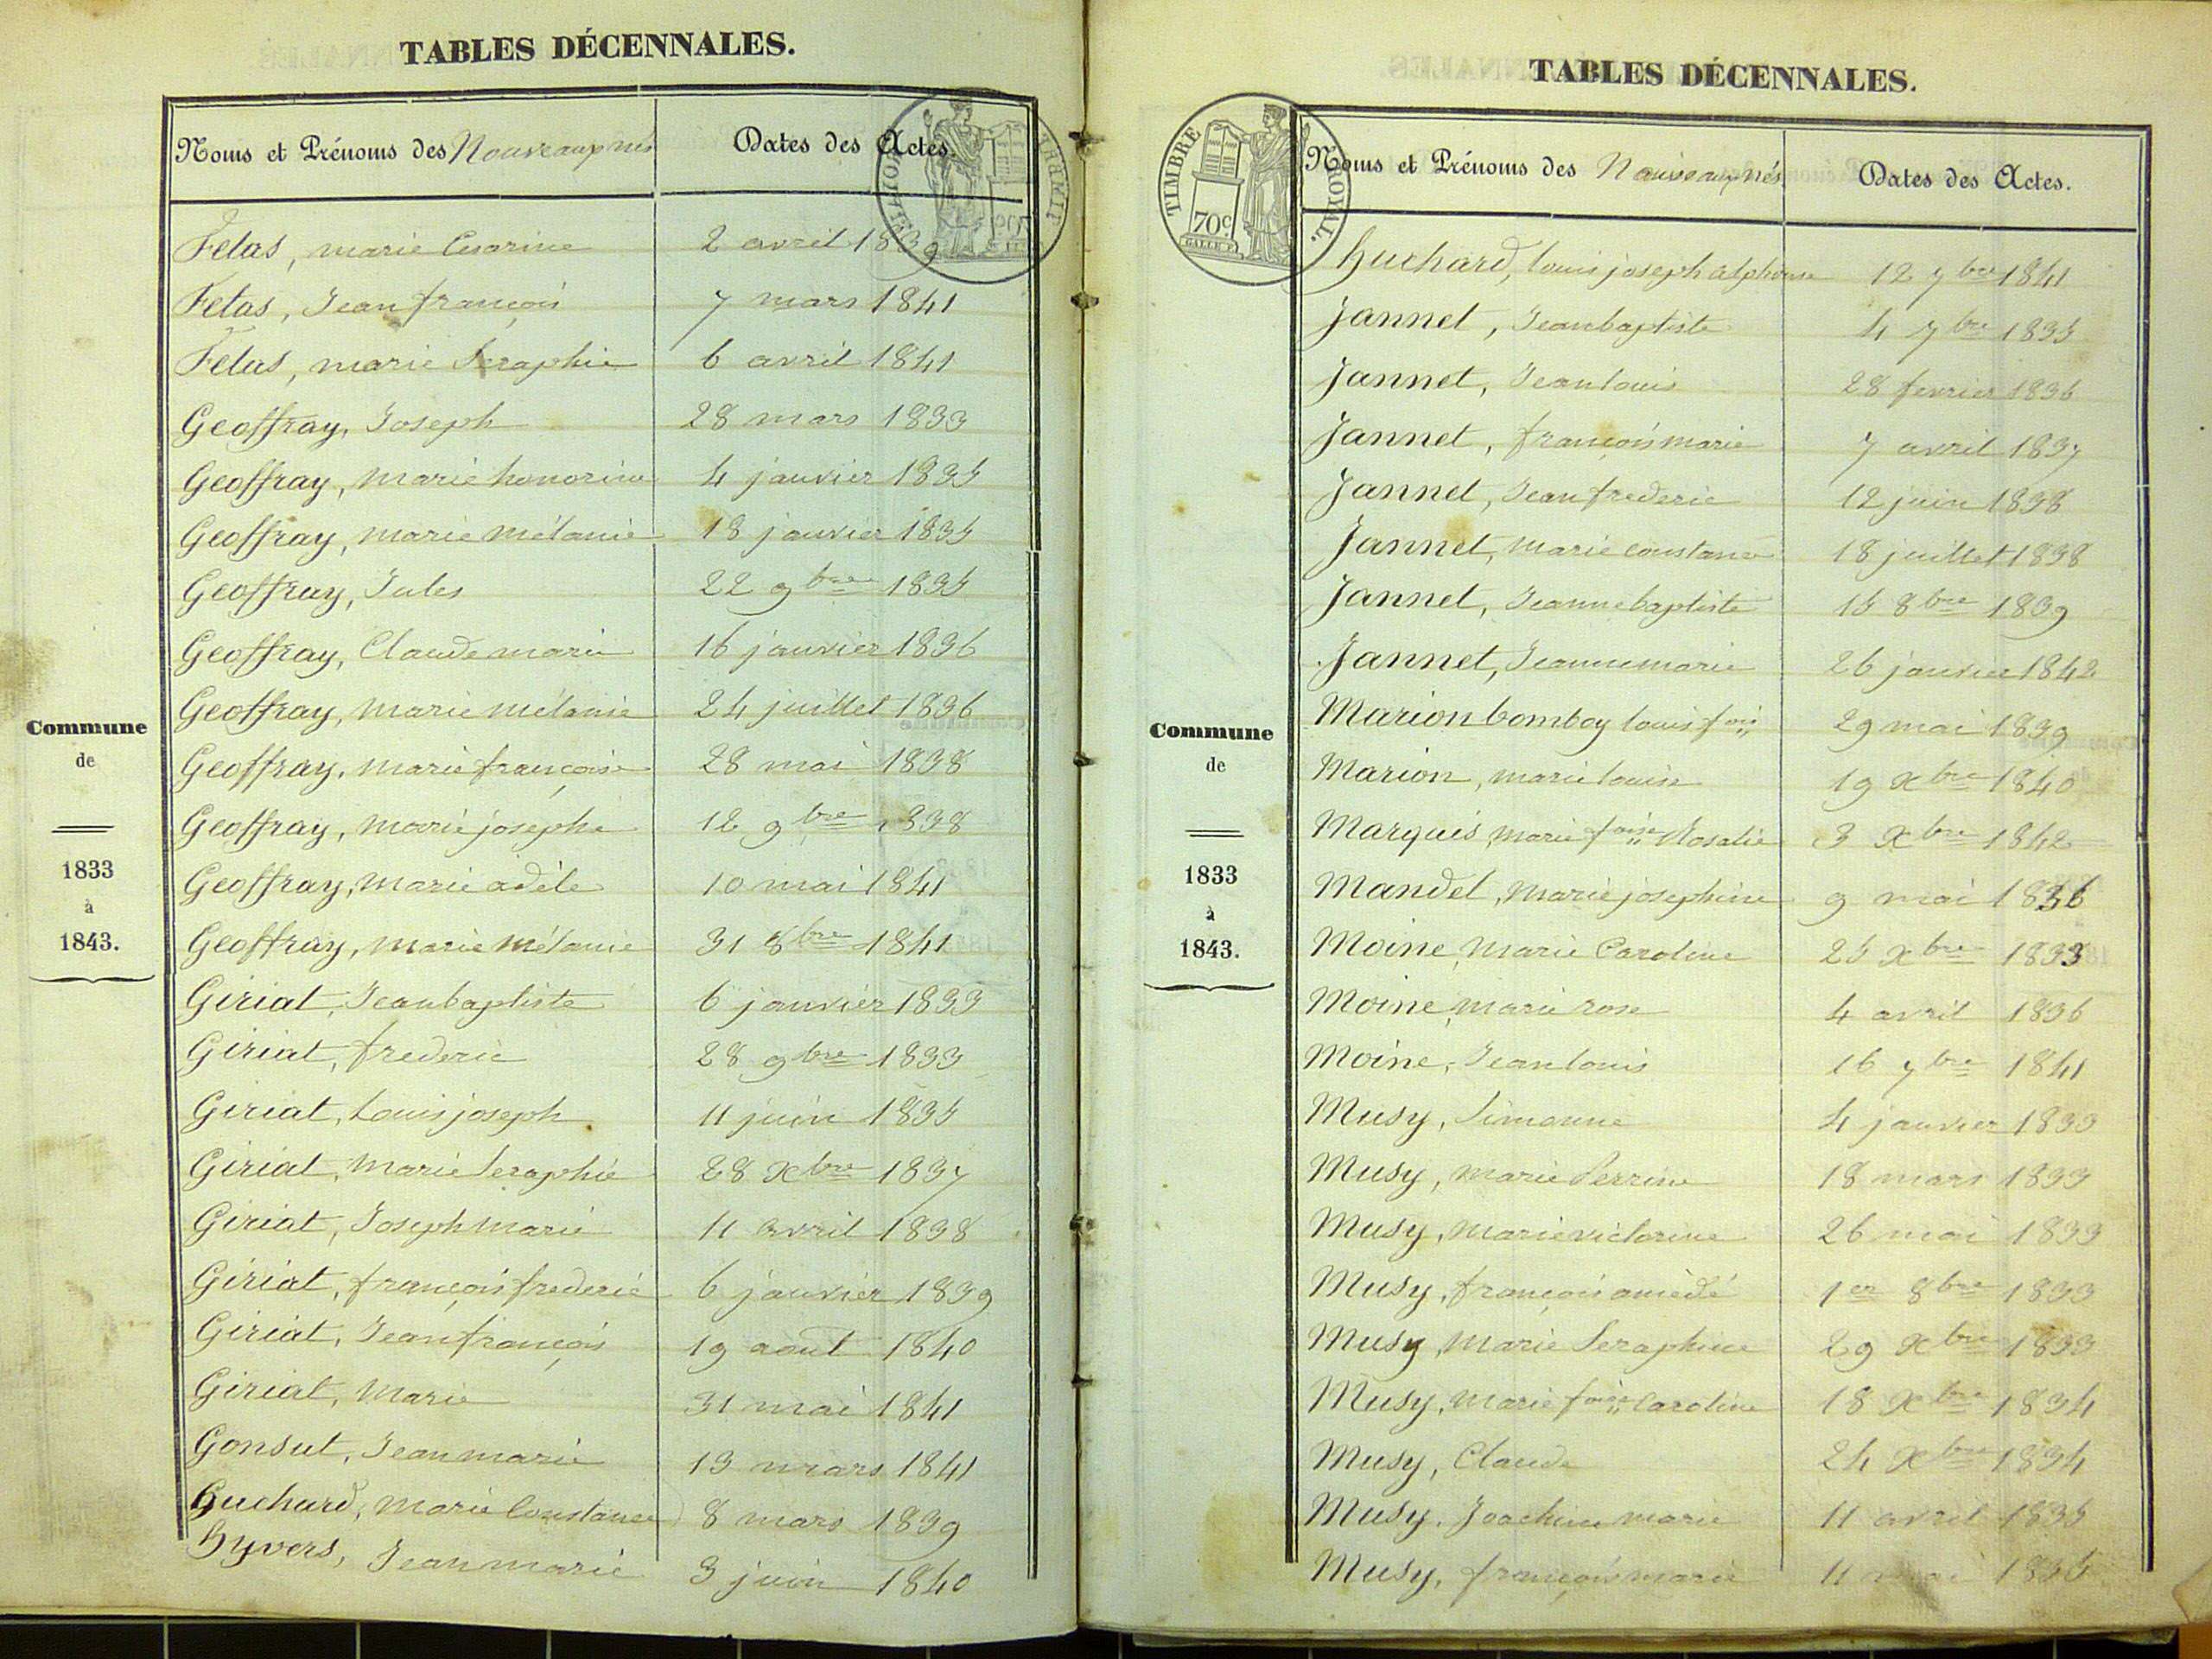 TABLES DÉCENNALES.
Noms et Prénoms des Nouveaux nés Dates des Actes.
Felas, marie Cesarine 2 avril 1839
Felas, Jean françois 7 mars 1841
Felas, marie Seraphie 6 avril 1841
Geoffray, Joseph 28 mars 1833
Geoffray, marie honorine 4 janvier 1835
Geoffray, marie mélanie 18 janvier 1835
Geoffray, Jules 22 9bre 1835
Geoffray, Claude marie 16 janvier 1836
Geoffray, marie mélanie 24 juillet 1836
Geoffray, marie françoise 28 mai 1838
Geoffray, marie josephe 12 9bre 1838
Geoffray, marie adèle 10 mai 1841
Geoffray, marie mélanie 31 8bre 1841
Giriat, Jean baptiste 6 janvier 1833
Giriat, frederic 28 9bre 1833
Giriat, Louis joseph 11 juin 1835
Giriat, marie Seraphie 28 Xbre 1837
Giriat, Joseph marie 11 avril 1838
Giriat, françois frederic 6 janvier 1839
Giriat, Jean françois 19 août 1840
Giriat, Marie 31 mai 1841
Gonsut, Jean marie 13 mars 1841
Guchard, marie Constance 8 mars 1839
hyvers, Jean marie 3 juin 1840
Commune
de
1833
à
1843.
TABLES DÉCENNALES.
TIMBRE ROYAL.
70c.
Noms et Prénoms des Nouveaux nés Dates des Actes.
huchard, louis joseph alphonse 12 7bre 1841
Jannet, Jean baptiste 4 7bre 1835
Jannet, Jean louis 28 fevrier 1836
Jannet, françois marie 7 avril 1837
Jannet, Jean frederic 12 juin 1838
Jannet, marie constance 18 juillet 1838
Jannet, Jeanne baptiste 15 8bre 1839
Jannet, Jeanne marie 26 janvier 1842
Marion bomboy louis fois 29 mai 1839
Marion, marie louise 19 Xbre 1840
Marquis, marie foise Rosalie 3 Xbre 1842
Mandel, marie josephine 9 mai 1836
Moine, marie Caroline 25 Xbre 1833
Moine, marie rose 4 avril 1836
Moine, Jean louis 16 7bre 1841
Musy, Simonne 4 janvier 1833
Musy, marie Perrine 18 mars 1833
Musy, marie victorine 26 mai 1833
Musy, françois amédé 1er 8bre 1833
Musy, marie Seraphine 29 Xbre 1833
Musy, marie foise Caroline 18 Xbre 1834
Musy, Claude 24 Xbre 1834
Musy, Joachim marie 11 avril 1835
Musy, françois marie 11 mai 1835
Commune
de
1833
à
1843.